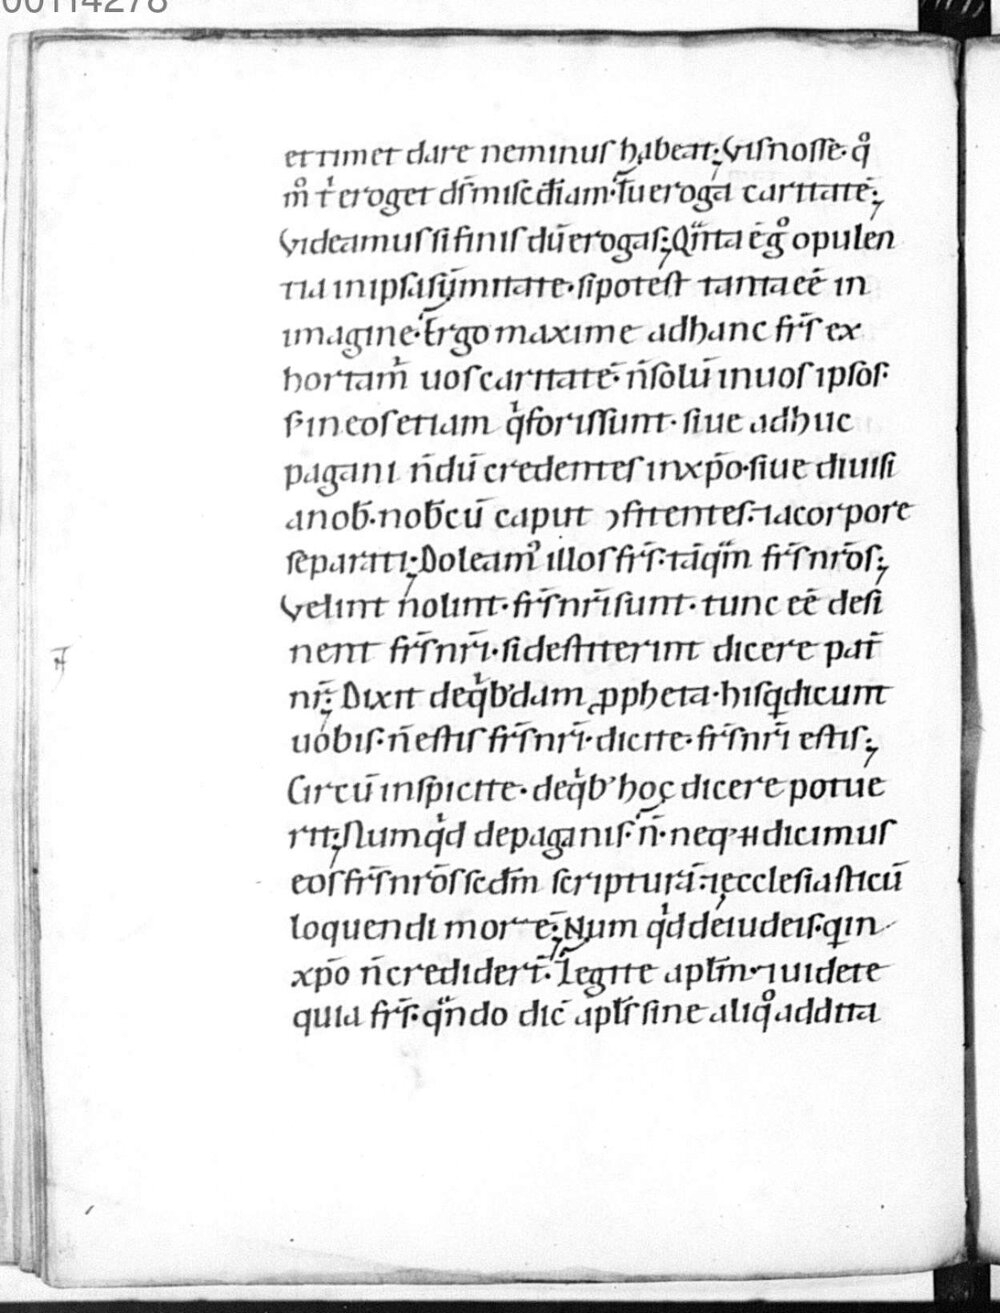 00114278
et timet dare ne minus habeat; Vis nosse· qͦ
mͦ tⁱ eroget dn̄s misc̄diam· Tu eroga caritatē;
Videamus si finis dū erogas; Qͣnta ē gͦ opulen
tia in ipsa sūmitate· si potest tanta eē in
imagine· Ergo maxime ad hanc fr̄s ex
hortamͥ uos caritatē· n̄ solū in uos ipsos·
s; in eos etiam qⁱ foris sunt· siue adhuc
pagani n̄dū credentes in xp̄o· siue diuisi
a nob̄· nob̄cū caput ꝯfitentes· ⁊ a corpore
separati; Doleamꝰ illos fr̄s· tāqͣm fr̄s nr̄os;
Velint nolint· fr̄s nr̄i sunt· tunc eē desi
nent fr̄s nr̄i· si destiterint dicere pat̄
nr̄; Dixit de qⁱbꝰdam ꝓpheta· his q̄ dicunt
uobis· n̄ estis fr̄s nr̄i· dicite· fr̄s nr̄i estis;
Circū inspicite· de qⁱbꝰ hoc dicere potue
rit; Numqⁱd de paganis· n̄· neqꝫ H dicimus
eos fr̄s nr̄os scdm̄ scripturā· ⁊ ęcclesiasticū
loquendi morē; Num qⁱd de iudeis· qui in
xp̄o n̄ credider̄t· Legite aplm̄· ⁊ uidete
quia fr̄s· qͣndo dic̄ apl̄s sine aliqͦ addita